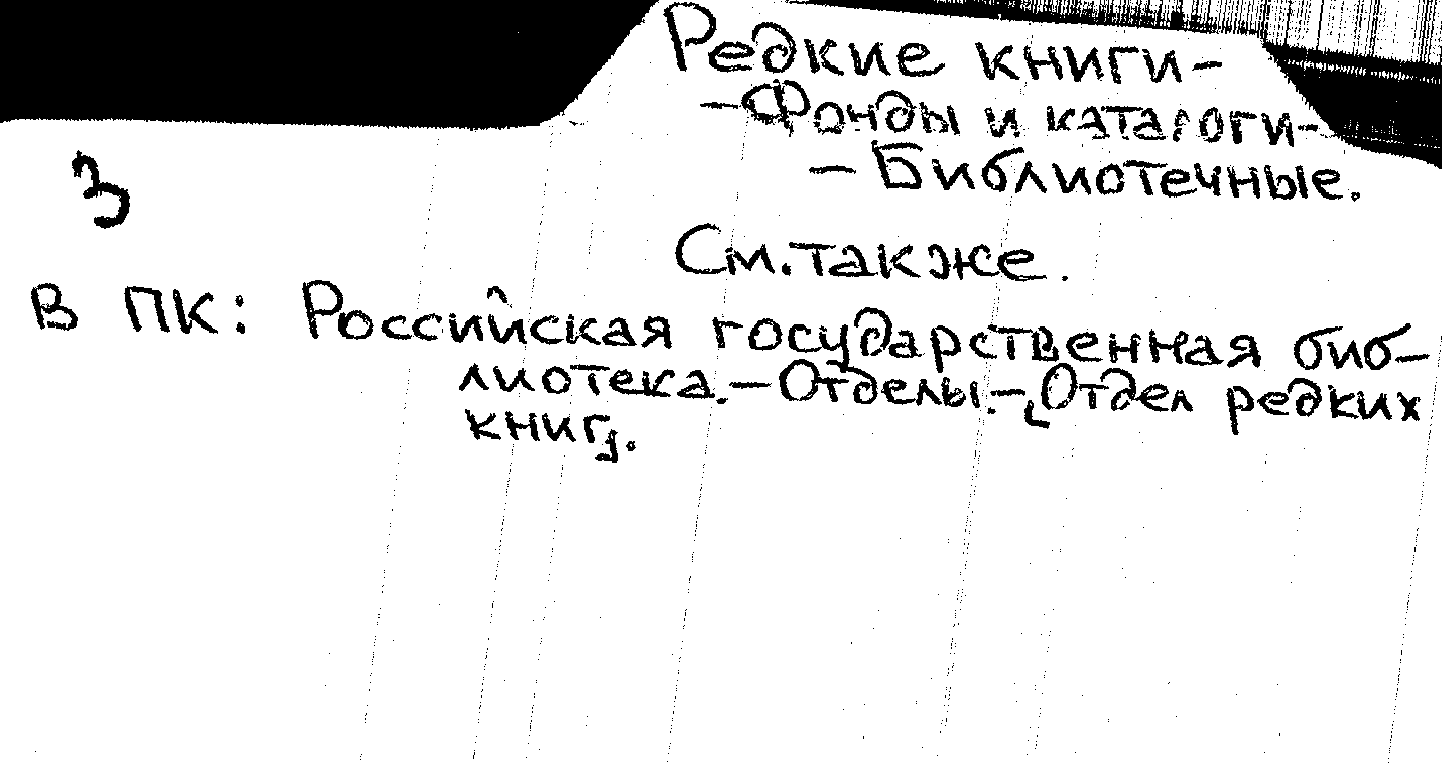 Редкие книги-
-Фонды и каталоги-
- Библиотечные.
3
См. также.
В ПК: Российская государственная биб-
лиотека.-Отделы.-„Отдел редких
книг„.